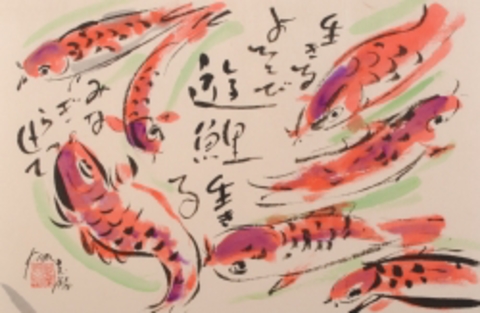 生きる
よろこび
遊鯉
生き
る
みな
ぎら
せて